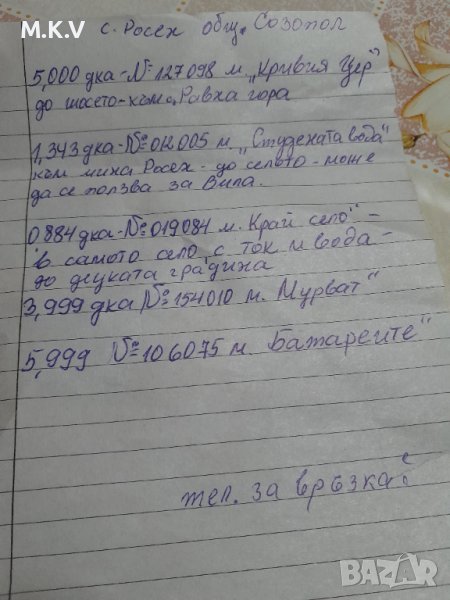 M.K.V
с. Росен общ. Созопол
5,000 дка-№127098 м. „Кривия Цер"
до шосето-към „Равна гора
1,343 дка-№012005 м. „Студената вода"
към мина Росен - до селото - може
да се ползва за Вила.
0.884 дка-№019084 м. Край село" -
в самото село с ток и вода -
до децката градина
3,999 дка №154010 м. Мурват"
5,999 №106075 м.
тел. за връзка:
BAZAR